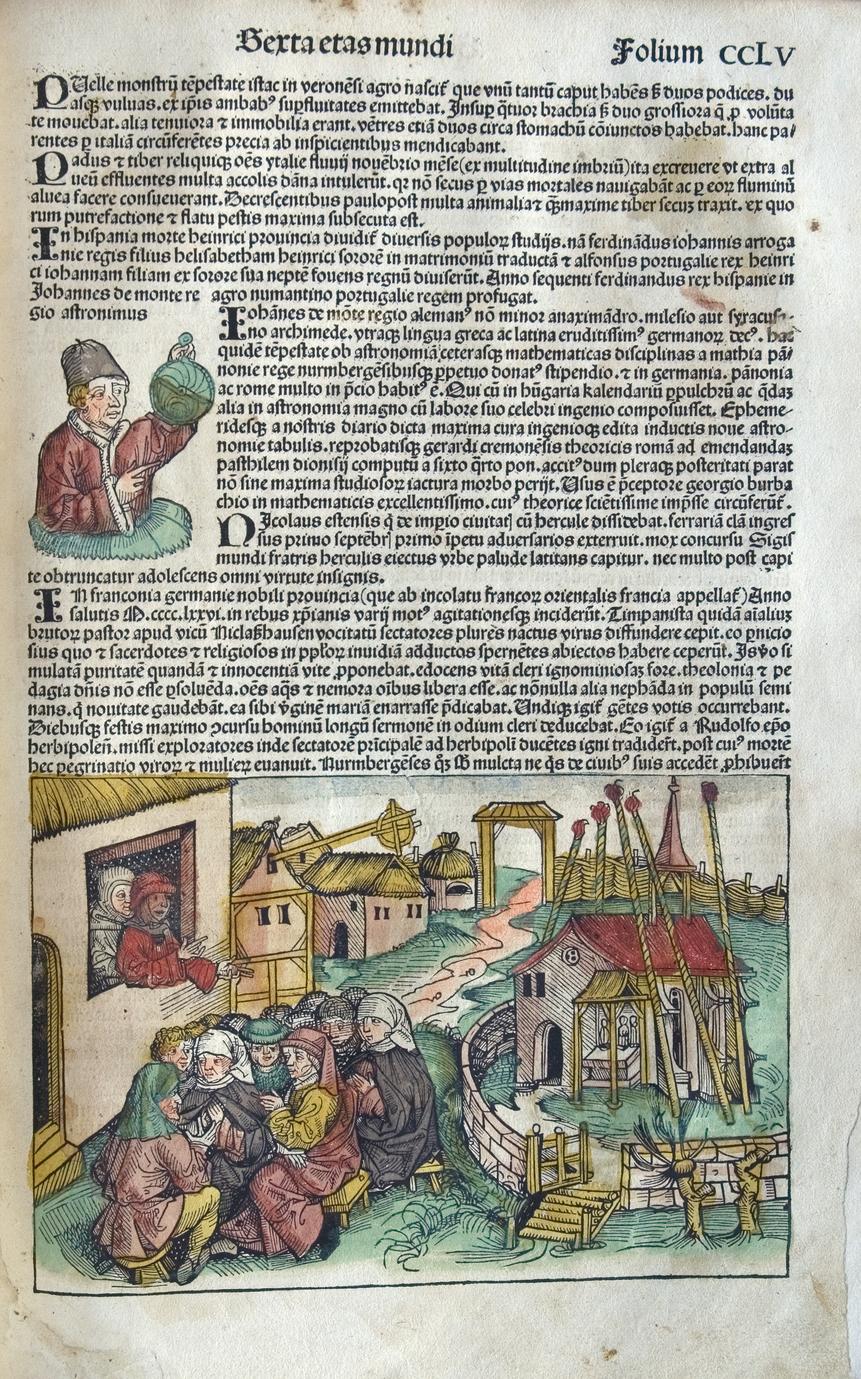 Sexta etas mundi
Folium CCLV
PUelle monstrū tēpestate istac in veronēsi agro nascit᷑ que vnū tantū caput habēs ß duos podices. du
asqꝫ vuluas. ex ip̄is ambabꝰ sup̄fluitates emittebat. Insup̄ q̄tuor brachia ß duo grossiora q̄ ꝓ volūta
te mouebat. alia tenuiora ⁊ immobilia erant. vētres etiā duos circa stomachū cōiunctos habebat. hanc pa/
rentes ꝑ italiā circūferētes precia ab inspicientibus mendicabant.
Padus ⁊ tiber reliquiqꝫ oēs ytalie fluuij nouēbrio mēse (ex multitudine imbriū) ita excreuere vt extra al
ueū effluentes multa accolis dāna intulerūt. qꝛ nō secus ꝑ vias mortales nauigabāt ac ꝑ eoꝝ fluminū
aluea facere consueuerant. Decrescentibus paulopost multa animalia ⁊ q̄ꝫmaxime tiber secuꝫ traxit. ex quo
rum putrefactione ⁊ flatu pestis maxima subsecuta est.
In hispania morte heinrici prouincia diuidit᷑ diuersis populoꝝ studijs. nā ferdinādus iohannis arroga
nie regis filius helisabetham heinrici sororē in matrimoniū traductā ⁊ alfonsus portugalie rex heinri
ci iohannam filiam ex sorore sua neptē fouens regnū diuiserūt. Anno sequenti ferdinandus rex hispanie in
agro numantino portugalie regem profugat.
Johannes de monte re
gio astronimus
Iohānes de mōte regio alemanꝰ nō minor anaximādro. milesio aut syracusa-
no archimede. vtraqꝫ lingua greca ac latina eruditissimꝰ germanoꝝ decꝰ. hac
quidē tēpestate ob astronomiā ceterasqꝫ mathematicas disciplinas a mathia pā/
nonie rege nurmbergēsibusqꝫ ꝑpetuo donatꝰ stipendio. ⁊ in germania. pānonia
ac rome multo in p̄cio habitꝰ ē. Qui cū in hūgaria kalendariū ꝑpulchrū ac q̄daꝫ
alia in astronomia magno cū labore suo celebri ingenio composuisset. Epheme-
ridesqꝫ a nostris diario dicta maxima cura ingenioqꝫ edita inductis noue astro-
nomie tabulis. reprobatisqꝫ gerardi cremonēsis theoricis romā ad emendandaꝫ
pasthilem dionisij computū a sixto q̄rto pon. accitꝰ dum pleraqꝫ posteritati parat
nō sine maxima studiosoꝝ iactura morbo perijt. Usus ē p̄ceptore georgio burba
chio in mathematicis excellentissimo. cuiꝰ theorice sciētissime imp̄sse circūferūt᷑.
NIcolaus estensis q̄ de imp̄io ciuitatꝭ cū hercule dissidebat. ferrariā clā ingres
sus primo septēbrꝭ primo īpetu aduersarios exterruit. mox concursu Sigis
mundi fratris herculis eiectus vrbe palude latitans capitur. nec multo post capi
te obtruncatur adolescens omni virtute insignis.
IN franconia germanie nobili prouincia (que ab incolatu francoꝝ orientalis francia appellat᷑) Anno
salutis M.cccc.lxxvi. in rebus xp̄ianis varij motꝰ agitationesqꝫ inciderūt. Timpanista quidā aīaliuꝫ
brutoꝝ pastor apud vicū Niclaßhausen vocitatū sectatores plures nactus virus diffundere cepit. eo ꝑnicio
sius quo ⁊ sacerdotes ⁊ religiosos in pplo̅ꝝ inuidiā adductos spernētes abiectos habere ceperūt. Is v̊o si
mulatā puritatē quandā ⁊ innocentiā vite ꝓponebat. edocens vitā cleri ignominiosaꝫ fore. theolonia ⁊ pe
dagia dn̄is nō esse ꝑsoluēda. oēs aq̄s ⁊ nemora oībus libera esse. ac nōnulla alia nephāda in populū semi
nans. q̄ nouitate gaudebāt. ea sibi v̄ginē mariā enarrasse p̄dicabat. Undiqꝫ igit᷑ gētes votis occurrebant.
Diebusqꝫ festis maximo ↄcursu hominū longū sermonē in odium cleri deducebat. Eo igit᷑ a Rudolfo ep̄o
herbipolen̄. missi exploratores inde sectatorē prīcipalē ad herbipolī ducētes igni tradider̄t. post cuiꝰ mortē
hec ꝑegrinatio viroꝝ ⁊ mulieꝝ euanuit. Nurmbergēses q̄ꝫ sb̄ mulcta ne q̄s de ciuibꝰ suis accedēt ꝓhibuer̄t